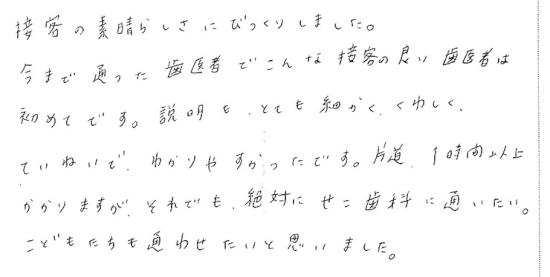 接客の素晴らしさにびっくりしました。
今まで通った歯医者でこんな接客の良い歯医者は
初めてです。説明も、とても細かく、くわしく、
ていねいで、わかりやすかったです。片道、1時間以上
かかりますが、それでも、絶対にせこ歯科に通いたい。
こどもたちも通わせたいと思いました。